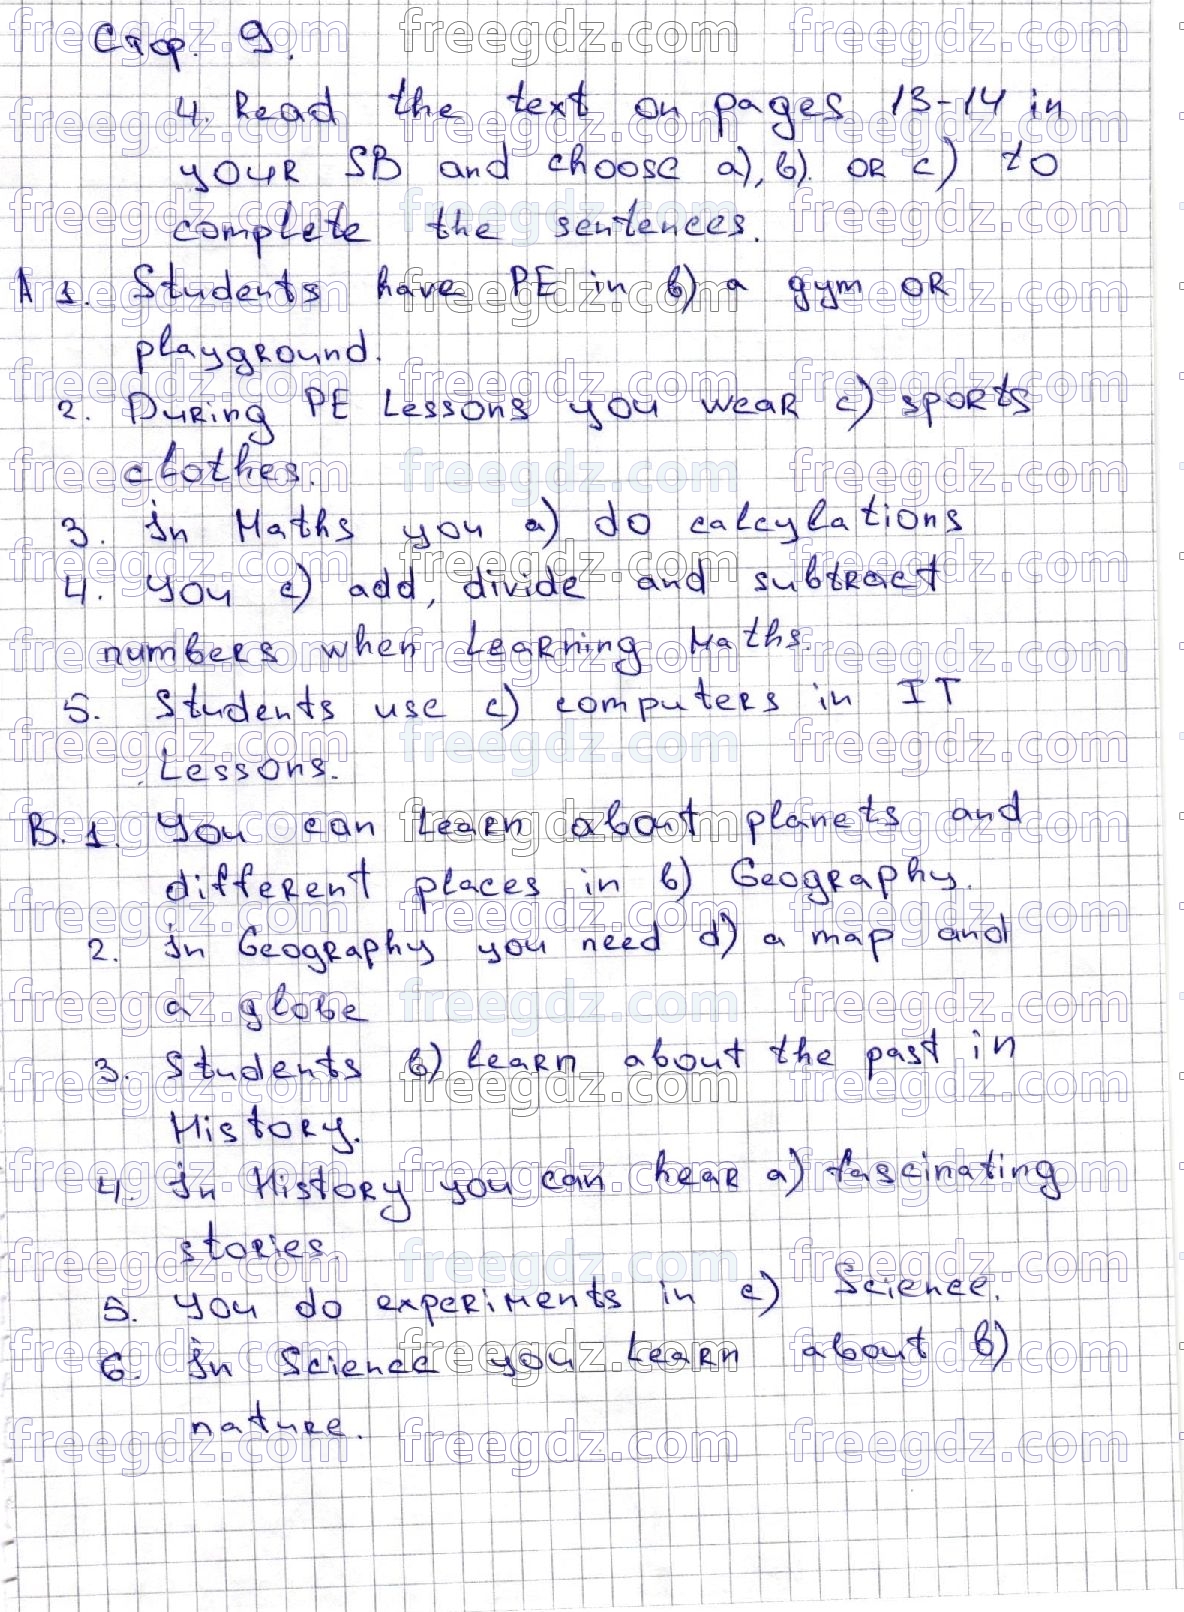 Стор. 9.
4. Read the text on pages 13-14 in
your SB and choose a), b), or c) to
complete the sentences.
A 1. Students have PE in b) a gym or
playground.
2. During PE Lessons you wear c) sports
clothes.
3. In Maths you a) do calcylations
4. You c) add, divide and subtract
numbers when learning Maths.
5. Students use c) computers in IT
Lessons.
B. 1. You can learn about planets and
different places in b) Geography.
2. In Geography you need d) a map and
a globe
3. Students b) learn about the past in
History.
4. In History you can hear a) fascinating
stories.
5. You do experiments in c) Science.
6. In Science you learn about b)
nature.
freegdz.com